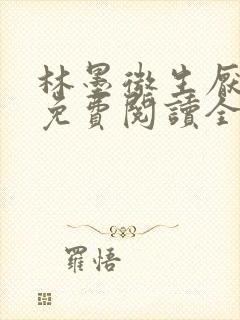 林墨微生厭
免費閱讀全
羅悟